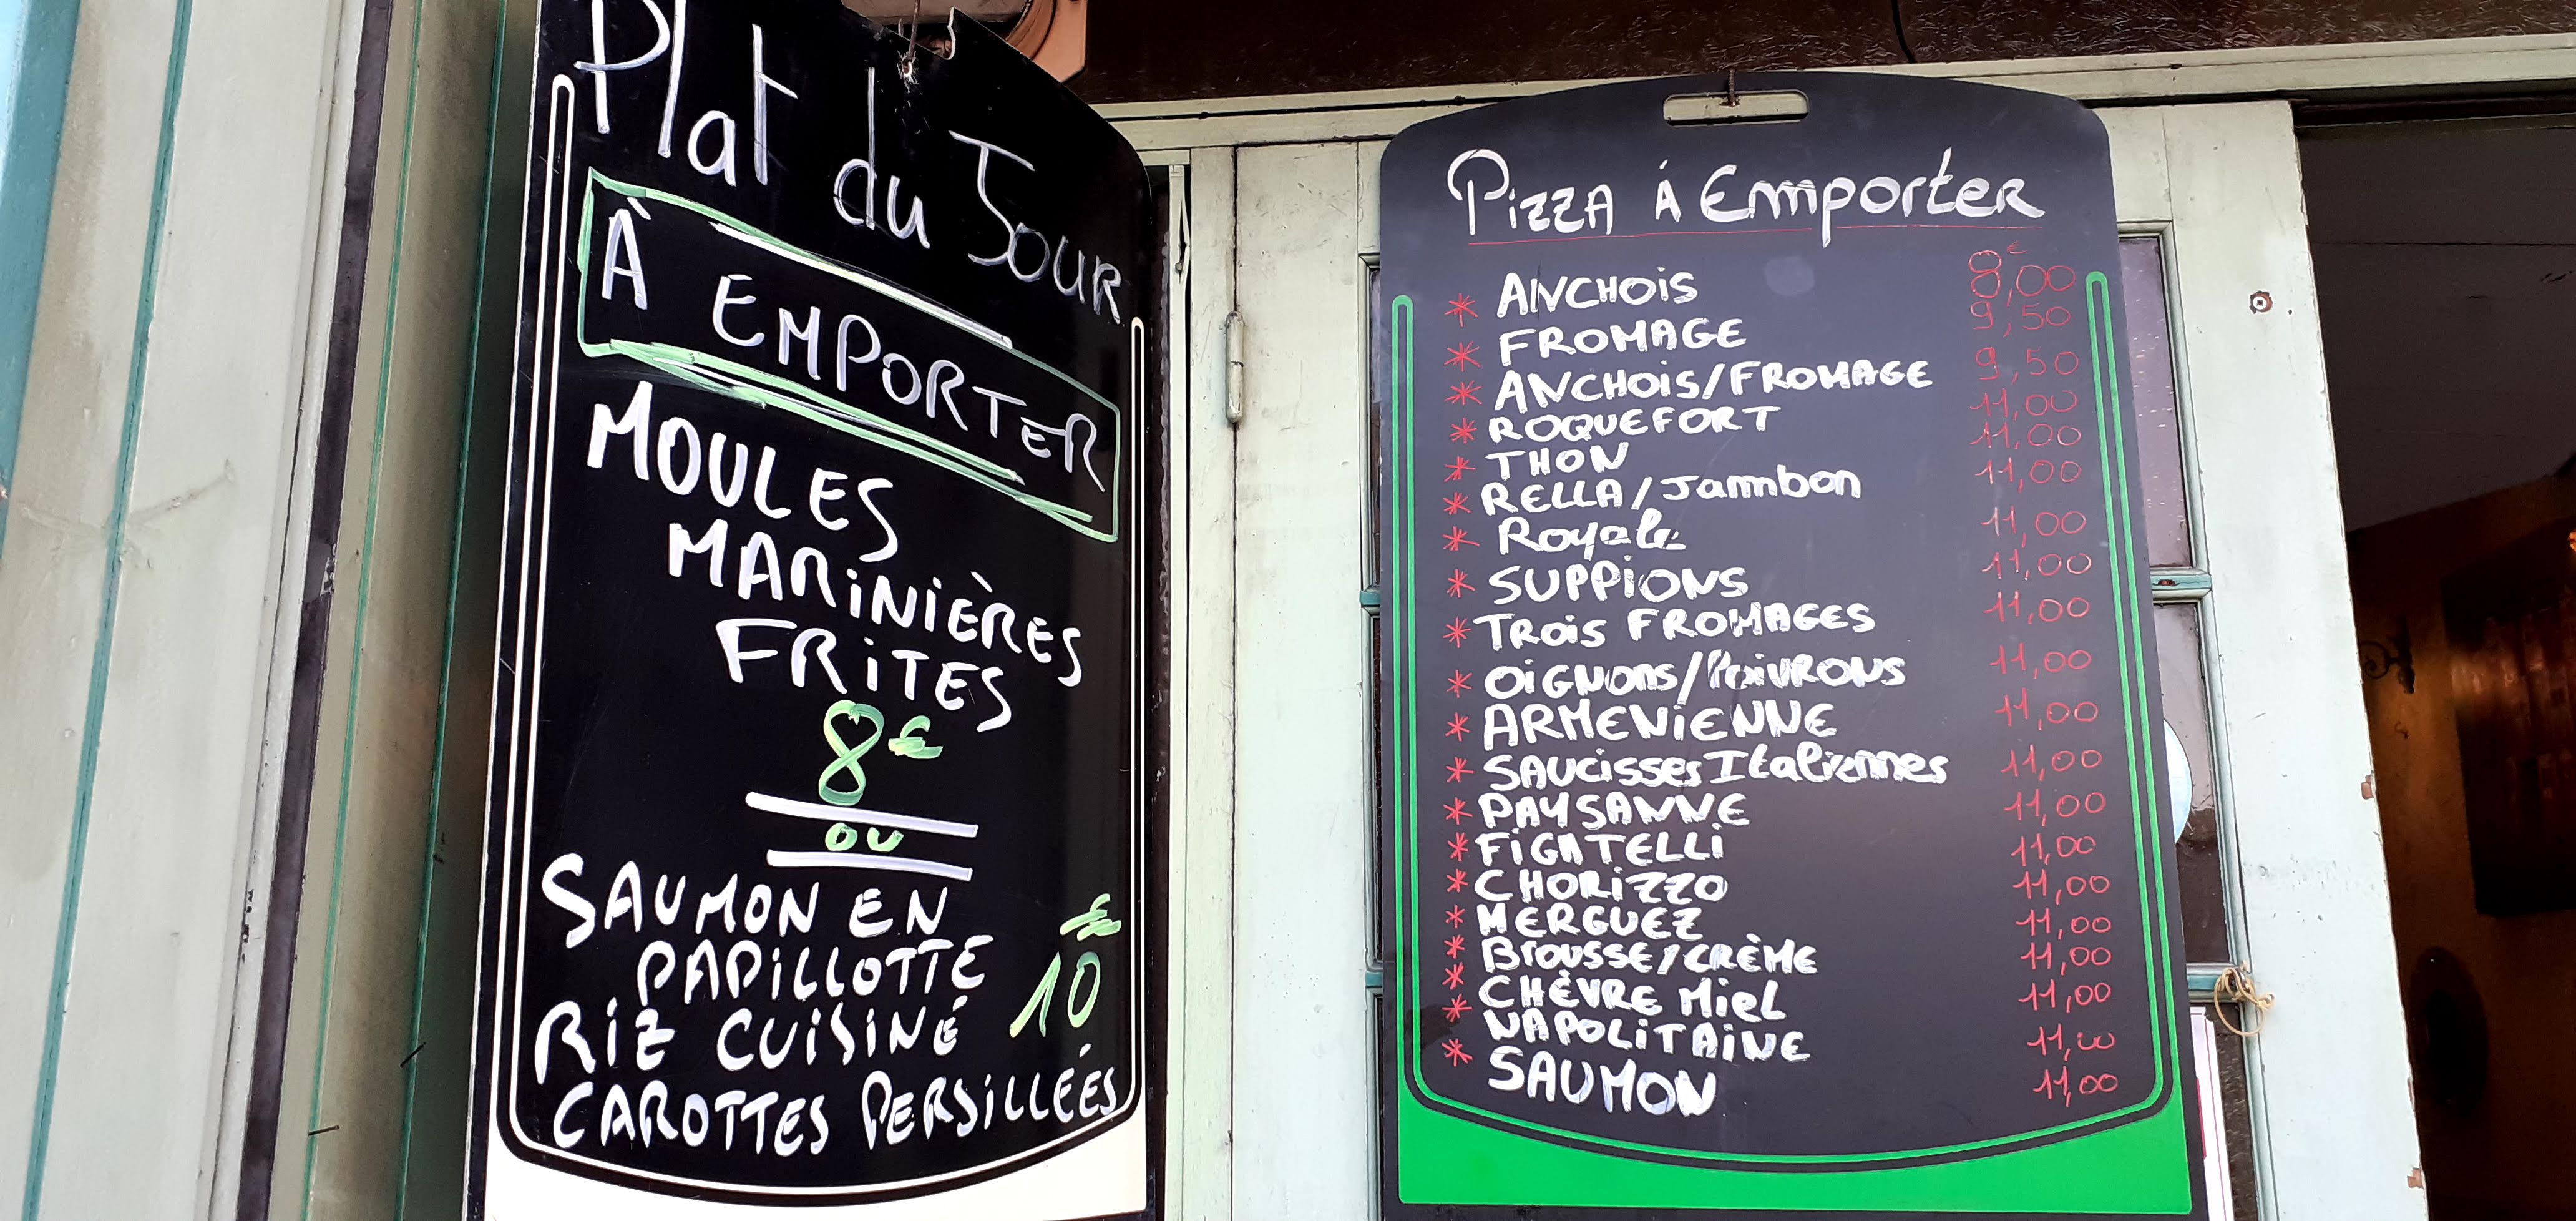 Plat du Jour
À EMPORTER
MOULES
MARINIÈRES
FRITES
8€
OU
SAUMON EN
PAPILLOTTE
10€
RIZ CUISINÉ
CAROTTES PERSILLÉES
Pizza á Emporter
* ANCHOIS 8,00€
* FROMAGE 9,50
* ANCHOIS/FROMAGE 9,50
* ROQUEFORT 11,00
* THON 11,00
* RELLA/Jambon 11,00
* Royale 11,00
* SUPPIONS 11,00
* TROIS FROMAGES 11,00
* OIGNONS/POIVRONS 11,00
* ARMENIENNE 11,00
* SAUCISSES Italiennes 11,00
* PAYSANNE 11,00
* FIGATELLI 11,00
* CHORIZZO 11,00
* MERGUEZ 11,00
* BROUSSE/CRÈME 11,00
* CHÈVRE MIEL 11,00
* NAPOLITAINE 11,00
* SAUMON 11,00